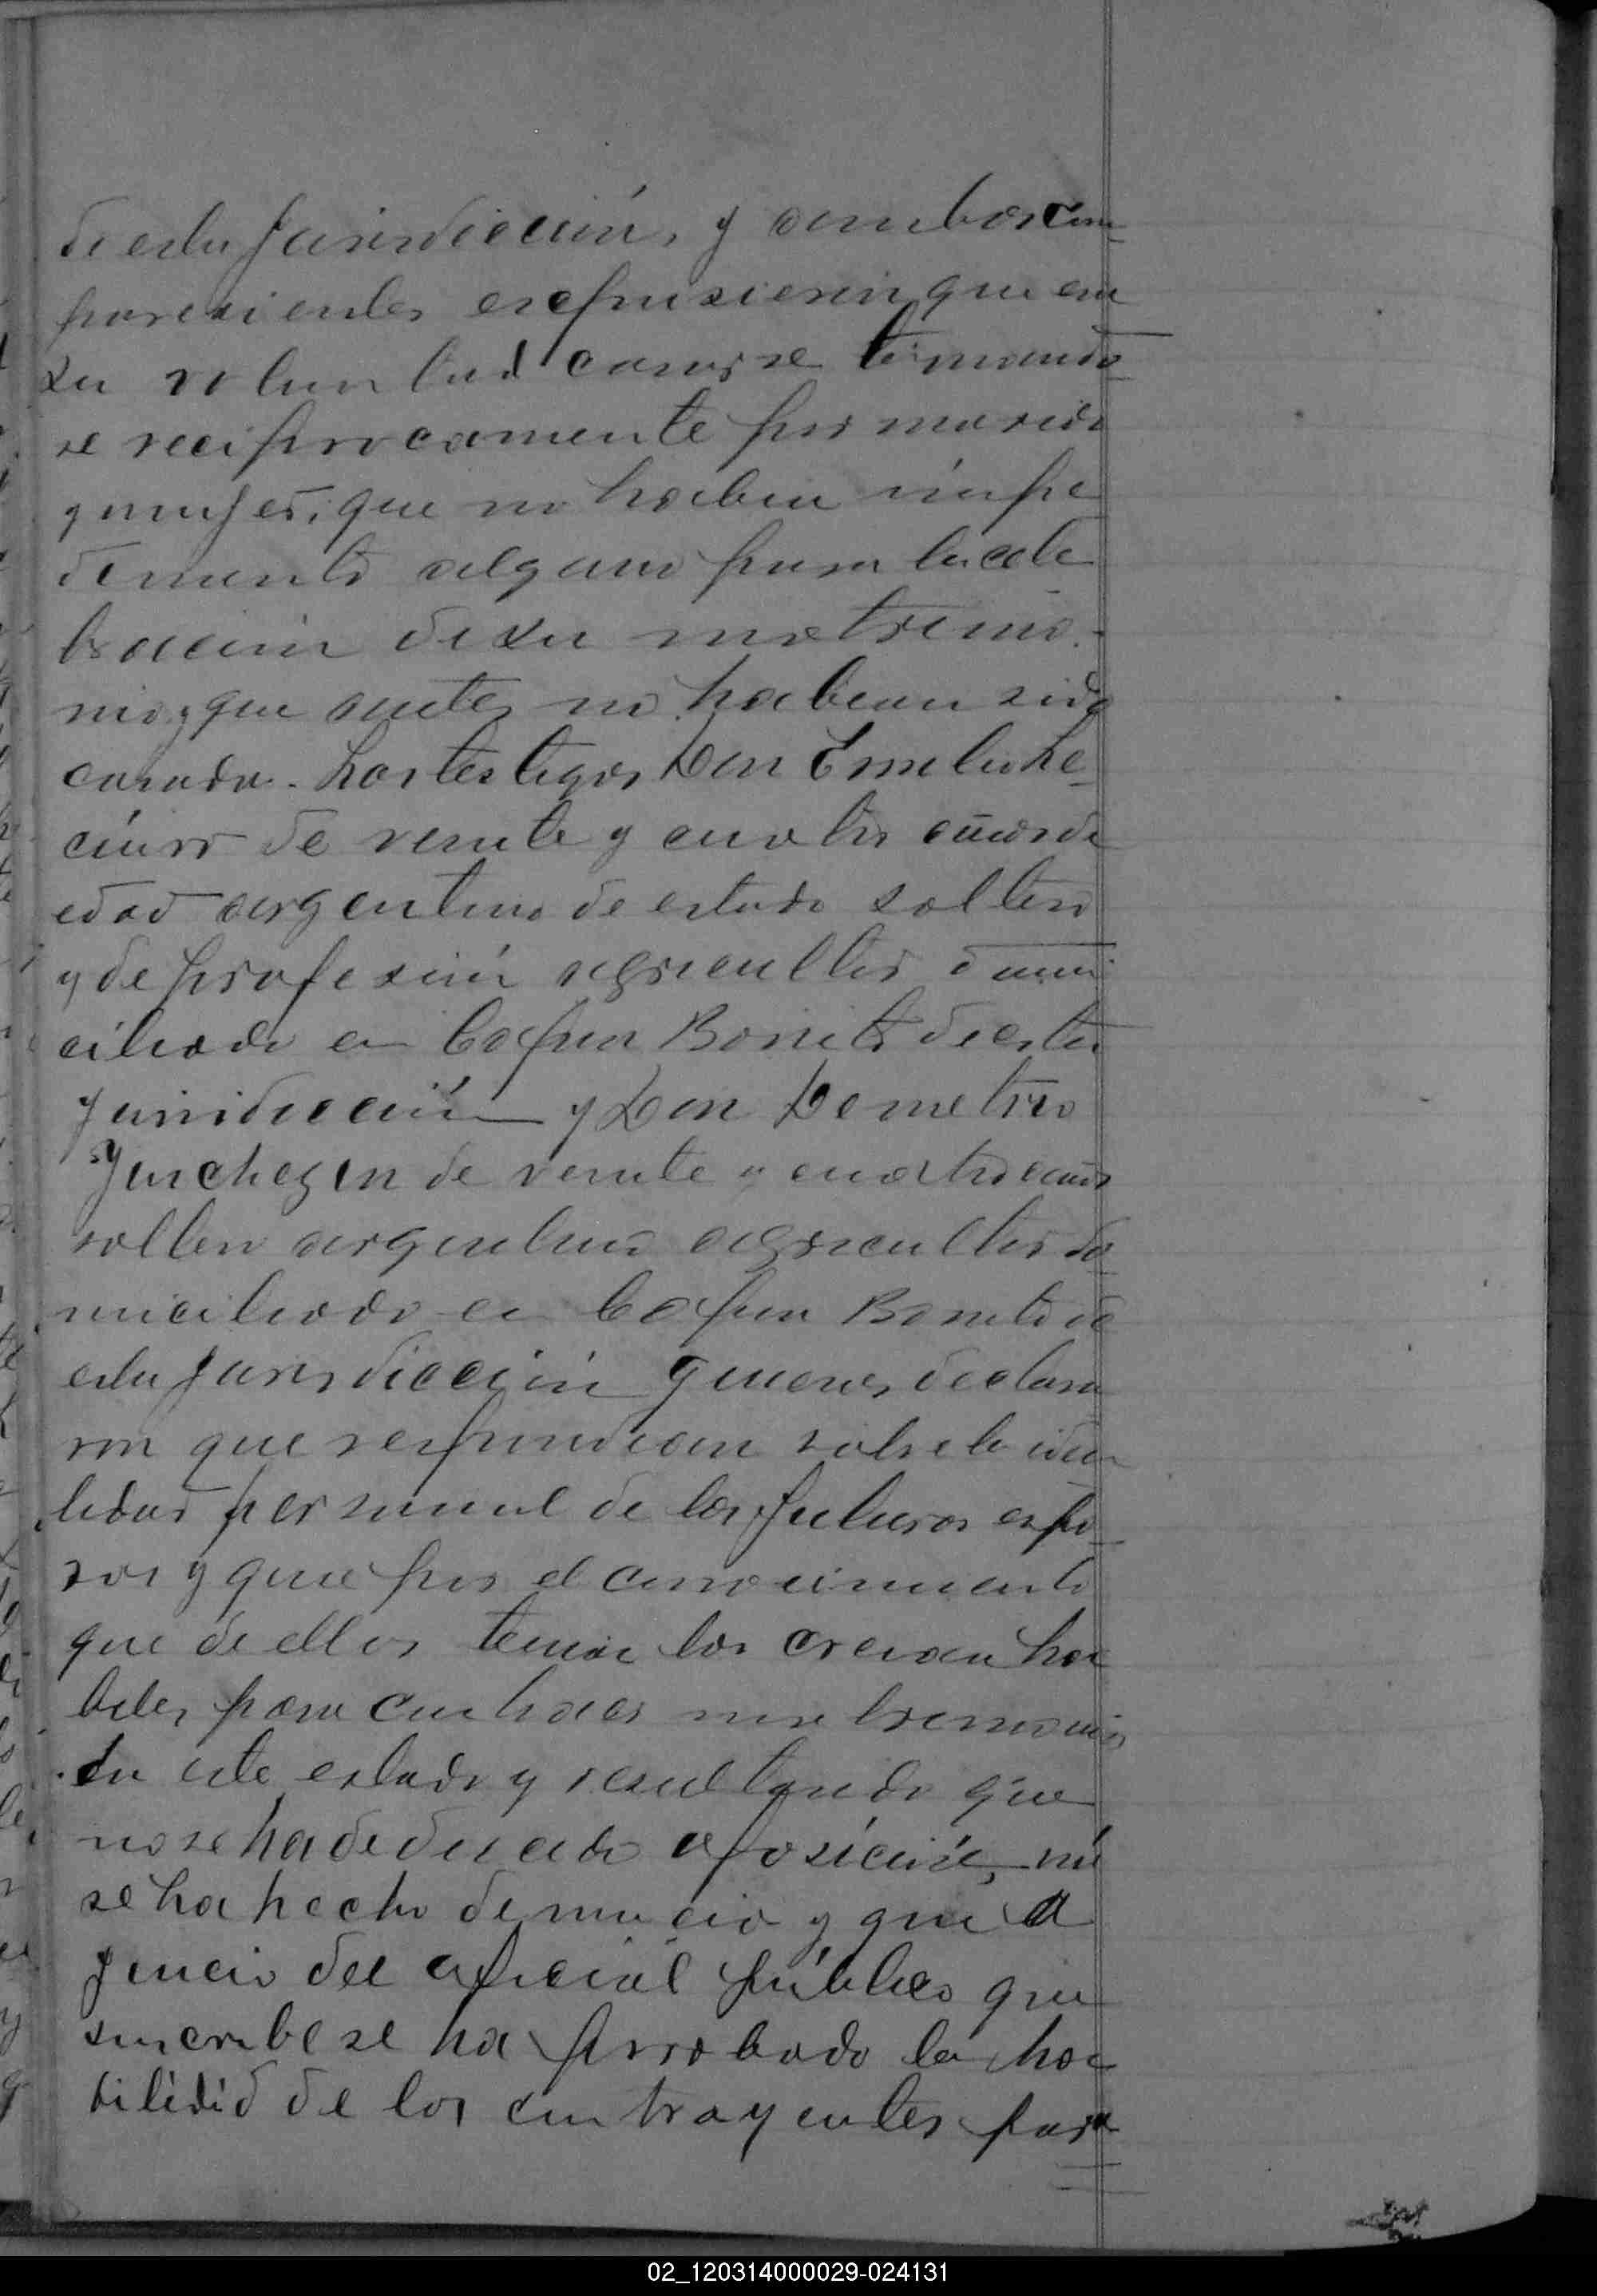 de esta Jurisdiccion, y ambos com-
paresientes expusieron que era
su voluntad casarse tomando-
se reciprocamente por marido
y mujer, que no habia impe
demento alguno para la cele
bracion de su matrimo-
nio, y que antes no habian sido
casado. Los testigos Don Emelio Le-
de veinte y cuatro años de
edad argentino de estado soltero
y de profesion agricultor domi
ciliado en Capon Bonito de esta
Jurisdiccion y Don Demetrio
de veinte y cuatro años
soltero argentino agricultor do-
miciliado en Capon Bonito de
esta Jurisdiccion quienes declara
ron que respondian sobre la iden
tidad personal de los futuros espo-
sos y que por el conocimiento
que de ellos tenia los creian ha
biles para contraer matremonio
En este estado y resultando que
no se ha deducido oposición, ni
se ha hecho denuncia y que a
juncio del oficial público que
suscribe se ha probado la ha-
bilidid de los contrayentes para